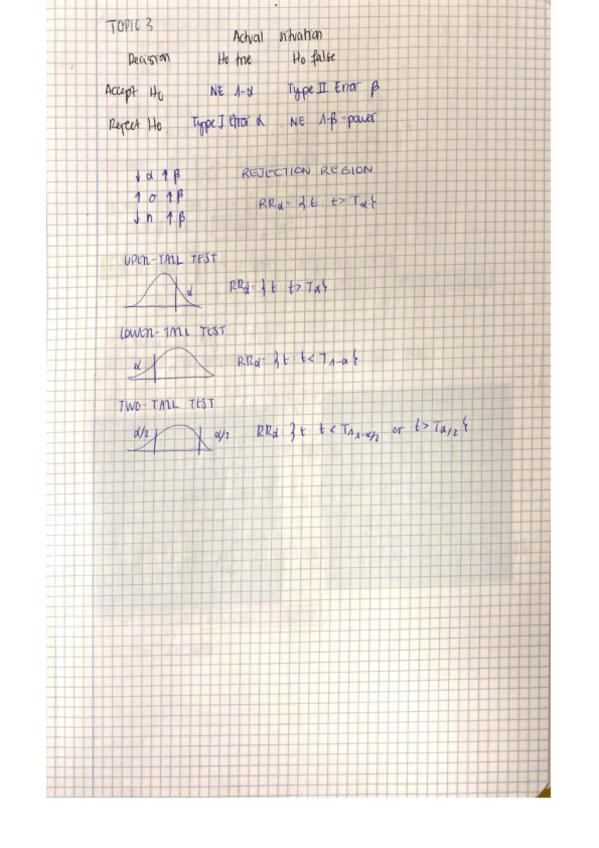 TOPIC 3
Actual situation
Decision H0 true H0 false
Accept H0 NE 1-α Type II Error β
Reject H0 Type I error α NE 1-β=power
↓ α ↑ β REJECTION REGION
↑ σ ↑ β RRα= {t: t> Tα}
↓ n ↑ β
UPER-TAIL TEST
α RRα= {t: t> Tα}
LOWER-TAIL TEST
α RRα= {t: t< T1-α}
TWO-TAIL TEST
α/2 α/2 RRα {t t < T1-α/2 or t > Tα/2}